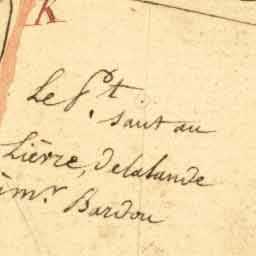 K
Le P.t
Saut au
Lièvre, delalande
im.r Bardou